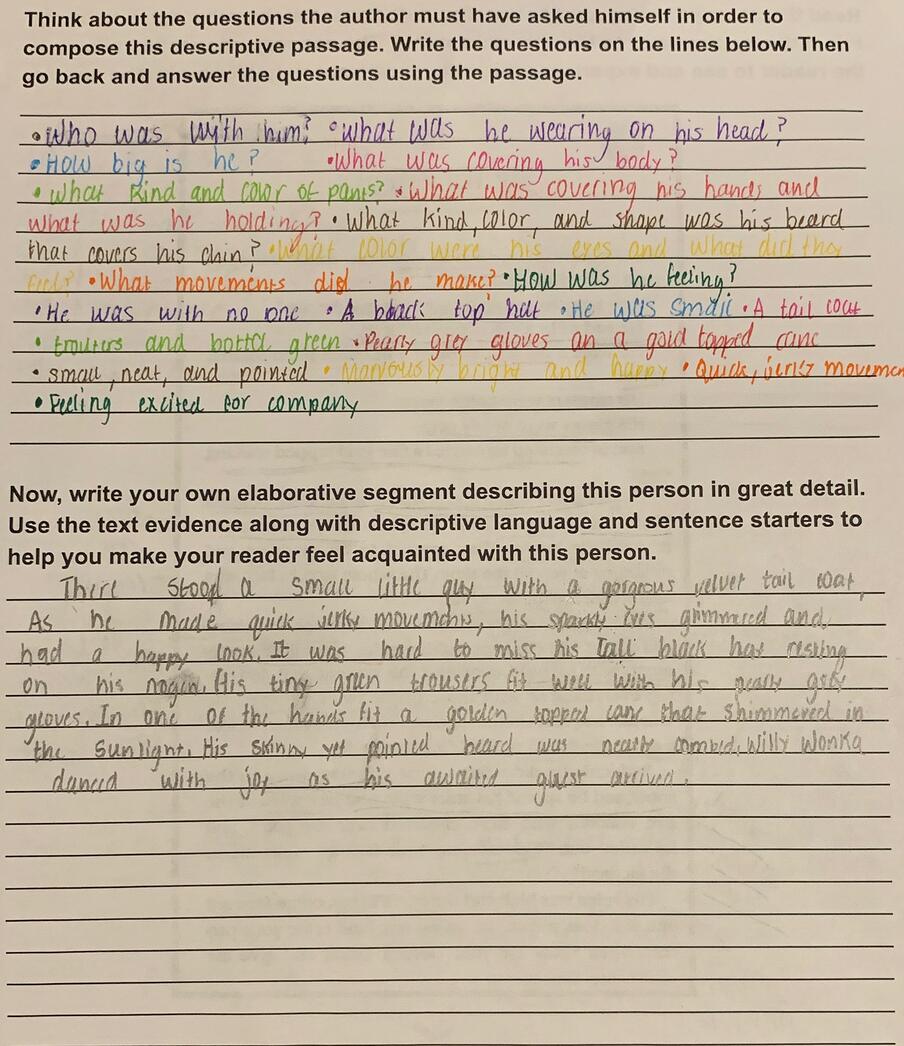 Think about the questions the author must have asked himself in order to
compose this descriptive passage. Write the questions on the lines below. Then
go back and answer the questions using the passage.
• Who was with him? • What was he wearing on his head?
• How big is he? • What was covering his body?
• What kind and color of pants? • What was covering his hands and
what was he holding? • What kind, color, and shape was his beard
that covers his chin? • What color were his eyes and what did they
feel? • What movements did he make? • How was he feeling?
• He was with no one • A black top hat • He was small • A tail coat
• trousers and bottle green • Pearly grey gloves an a gold topped cane
• small, neat, and pointed • Marvously bright and happy • Quick, jerky movemen
• Feeling excited for company
Now, write your own elaborative segment describing this person in great detail.
Use the text evidence along with descriptive language and sentence starters to
help you make your reader feel acquainted with this person.
There stood a small little guy with a gorgrous velvet tail coat,
As he made quick jerky movements, his sparkly eyes glimmered and
had a happy look. It was hard to miss his tall black hat resting
on his nogin. His tiny green trousers fit well with his pearly grey
gloves. In one of the hands fit a golden topped cane that shimmered in
the sunlight. His skinny yet pointed beard was neatly combed. Willy Wonka
danced with joy as his awaited guest arrived.